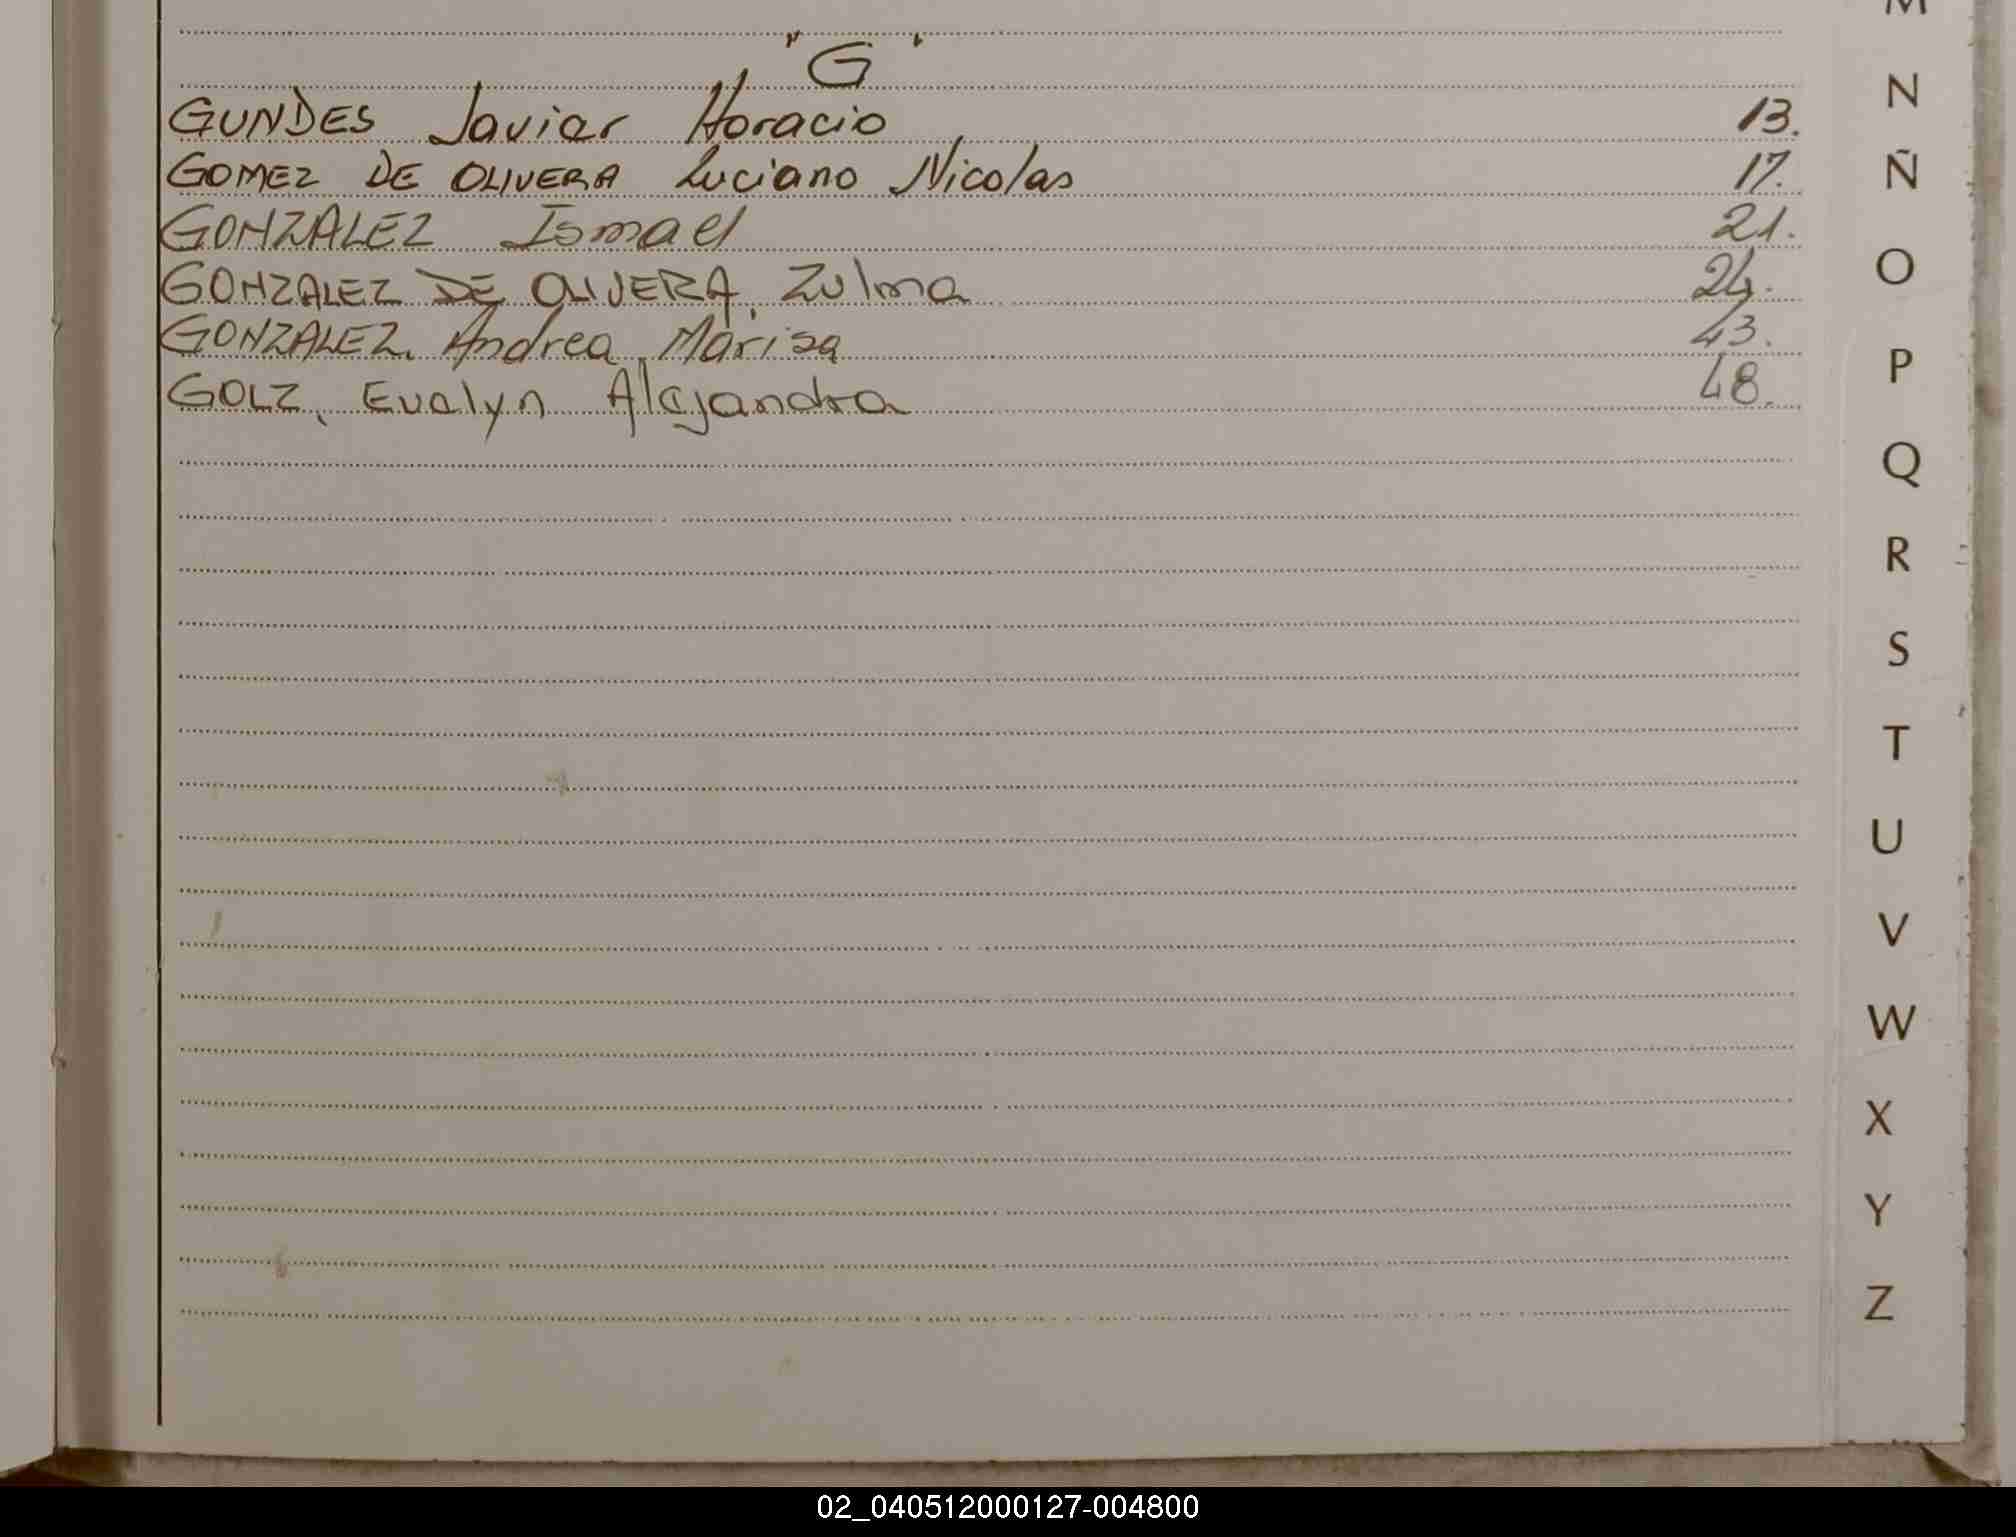 "G"
GUNDES Javier Horacio 13.
GOMEZ DE OLIVERA Luciano Nicolas 17.
GONZALEZ Ismael 21.
GONZALEZ DE OLIVERA, Zulma 24.
GONZALEZ. Andrea Marisa 43.
GOLZ, Evelyn Alejandra 48.
M
N
Ñ
O
P
Q
R
S
T
U
V
W
X
Y
Z
02_040512000127-004800